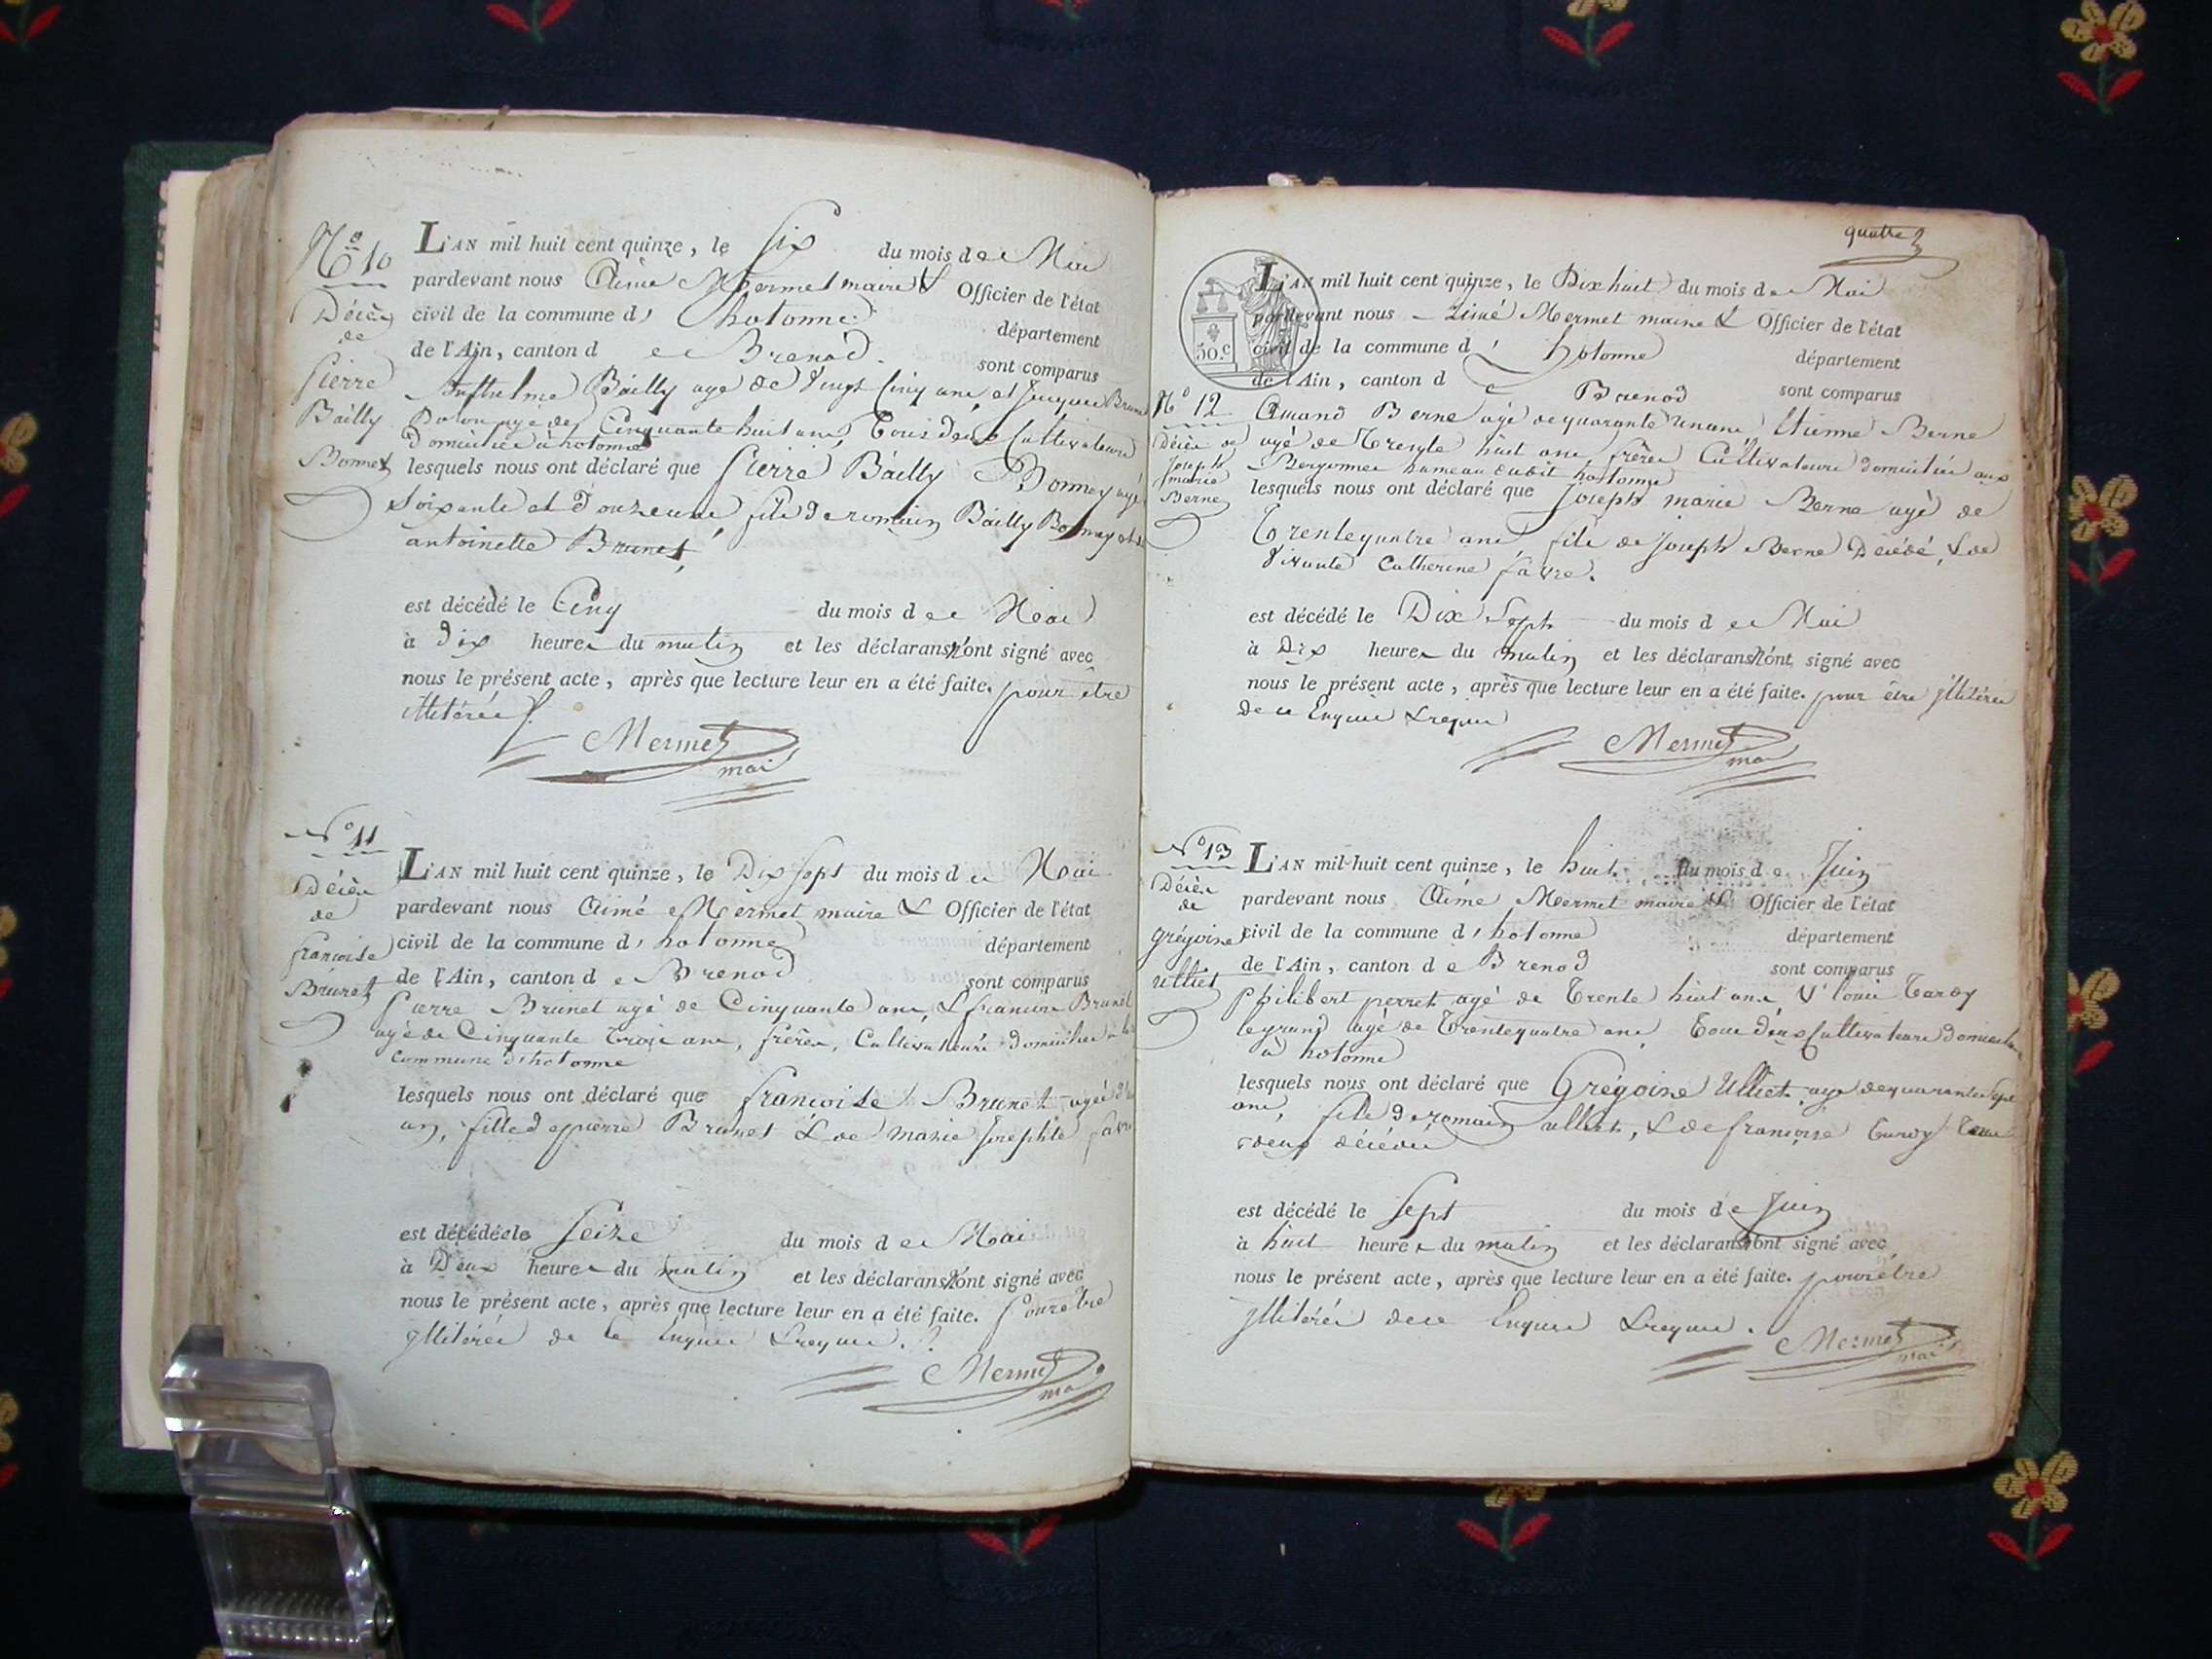 N.o 10
Décès
de
Pierre
Bailly
Bonnet
L'AN mil huit cent quinze, le Six du mois de Mai
pardevant nous Aimé Mermet maire & Officier de l'état
civil de la commune d, hotonne département
de l'Ain, canton de Brenod. sont comparus
Anthelme Bailly agé de Vingt Cinq ans et Jacques Brunet
agé de Cinquante huit ans, Tous deux Cultivateurs
Domiciliés à hotonne
lesquels nous ont déclaré que Pierre Bailly Bonnet agé
Soixante et Douze ans fils de romain Bailly Bonnet et
antoinette Brunet
est décédé le Cinq du mois de Mai
à dix heures du matin et les déclarans n'ont signé avec
nous le présent acte, après que lecture leur en a été faite. pour être
illitérés
Mermet
mai
N.o 11
Décès
de
françoise
Brunet
L'AN mil huit cent quinze, le Dix Sept du mois de Mai
pardevant nous Aimé Mermet maire & Officier de l'état
civil de la commune d, hotonne département
de l'Ain, canton de Brenod sont comparus
Pierre Brunet agé de Cinquante ans, & françois Brunet
agé de Cinquante Trois ans, frères, Cultivateurs domiciliés à la
Commune d'hotonne
lesquels nous ont déclaré que françoise Brunet agée d'un
an, fille de pierre Brunet & de marie Josephte favre
est décédée le Seize du mois de Mai
à Deux heures du matin et les déclarans n'ont signé avec
nous le présent acte, après que lecture leur en a été faite. Pour être
jllitérés de ce Enquis & requis.
Mermet
ma
quatre
50.c
N.o 12
Décès de
Joseph
marie
Berne
L'AN mil huit cent quinze, le Dix huit du mois de Mai
pardevant nous Aimé Mermet maire & Officier de l'état
civil de la commune d' hotonne département
de l'Ain, canton de Brenod sont comparus
Amand Berne agé de quarante un ans, Etienne Berne
agé de Trente huit ans, frères Cultivateurs domiciliés aux
Bergonnes hameau dudit hotonne
lesquels nous ont déclaré que Joseph marie Berne agé de
Trentequatre ans fils de Joseph Berne Décédé, & de
Vivante Catherine favre.
est décédé le Dix Sept du mois de Mai
à Dix heures du matin et les déclarans n'ont signé avec
nous le présent acte, après que lecture leur en a été faite. pour être jllitérés
de ce Enquis & requis
Mermet
mai
N.o 13
Décès
de
grégoire
Ulliet
L'AN mil huit cent quinze, le huit du mois de Juin
pardevant nous Aimé Mermet maire & Officier de l'état
civil de la commune d, hotonne département
de l'Ain, canton de Brenod sont comparus
Philibert perret agé de Trente huit ans & louis Tardy
legrand agé de Trentequatre ans, Tous deux Cultivateurs Domiciliés
à hotonne
lesquels nous ont déclaré que Grégoire Ulliet agé de quarante Sept
ans, fils de romain ulliet, & de françoise Tardy Tous
deux décédés
est décédé le Sept du mois de Juin
à huit heures du matin et les déclarans n'ont signé avec
nous le présent acte, après que lecture leur en a été faite. pour être
jllitérés de ce Enquis & requis.
Mermet
mai